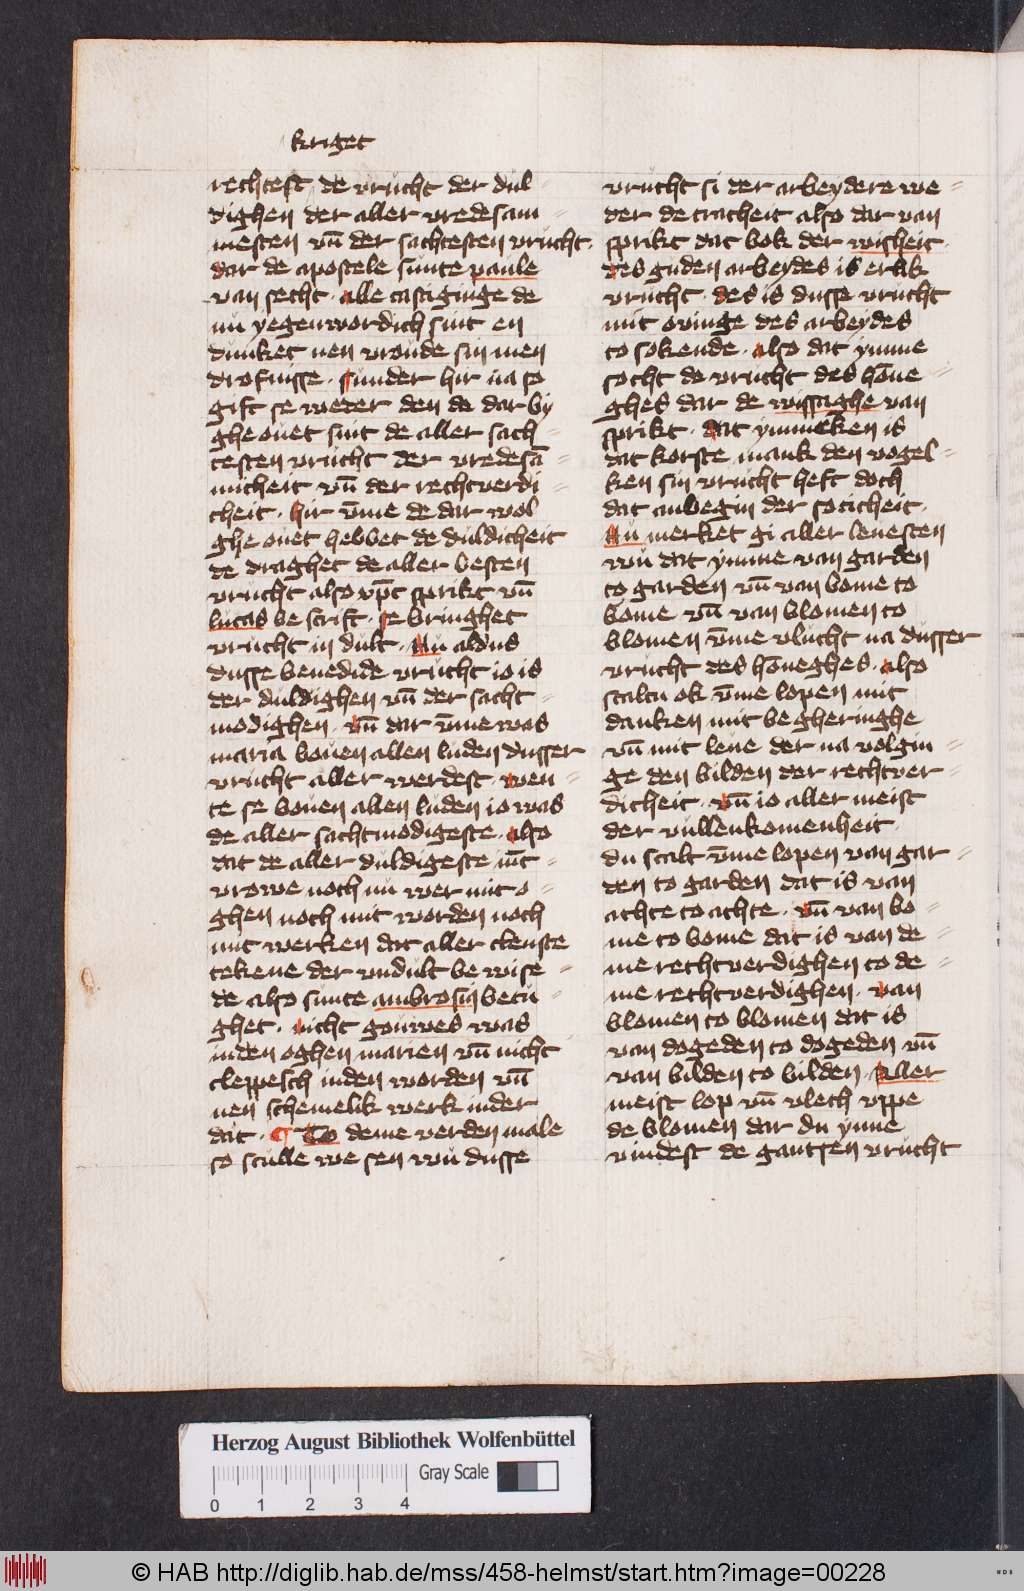 kriget
rechtest de vrucht der dul=
dighen der aller vredesam=
mesten vn̄ der sachtesten vrucht.
dar de apostele sunte paule
van secht. alle castiginge de
nu yegenwordich sint en
dunket nen vroude sin men
drofnisse. sunder hir na so
gift se weder den de dar by
gheouet sint de aller sach=
testen vrucht der vredesā=
micheit vn̄ der rechtverdi=
cheit. hir v̄me de dar wol
gheouet hebbet de duldicheit
de draghet de aller besten
vrucht also xp̄c sprikt vn̄
lucas be scrift. se bringhet
vrucht in dult. Nu aldus
dusse benedide vrucht io is
der duldighen vn̄ der sacht=
modighen. vn̄ dar v̄me was
maria bouen allen luden dusser
vrucht aller werdest. wen=
te se bouen allen luden io was
de aller sachtmodigeste. also
dat de aller duldigeste iūc=
vrowe noch nu wer mit o=
ghen noch mit worden noch
mit werken dat aller clenste
tekene der vndult be wise=
de also sunte ambrosiꝯ betu=
ghet. nicht gouwes was
inden oghen marien vn̄ nicht
cleppesch inden worden vn̄
nen schemelik werk inder
dat. ¶ To deme verden male
so sculle we sen wu dusse
vrucht si der arbeydere we=
der de tracheit also dar van
sprikt dat bok der wisheit.
des guden arbeydes is erlik
vrucht. des is dusse vrucht
mit ovinge des arbeydes
to sokende. also dat ymme
socht de vrucht des hōne=
ghes dar de wissaghe van
sprikt. dat ymmeken is
dat korste mank den vogel=
ken sin vrucht heft doch
dat anbegin der soticheit.
Nu merket gi aller leuesten
wu dat ymme van garden
to garden vn̄ van bome to
bome vn̄ van blomen to
blomen v̄me vlucht na dusser
vrucht des hōneghes. also
scaltu ok v̄me lopen mit
danken mit begheringhe
vn̄ mit leue der na volgin=
ge den bilden der rechtver=
dicheit. vn̄ io aller meist
der vullenkomenheit.
du scalt v̄me lopen van gar=
den to garden dat is van
achte to achte. vn̄ van bo=
me to bome dat is van de=
me rechtverdighen to de=
me rechtverdighen. van
blomen to blomen dat is
van dogeden to dogeden vn̄
van bilden to bilden. aller
meist lop vn̄ vlech vppe
de blomen dar du ynne
vindest de gantsen vrucht
Herzog August Bibliothek Wolfenbüttel
0 1 2 3 4
Gray Scale
© HAB http://diglib.hab.de/mss/458-helmst/start.htm?image=00228